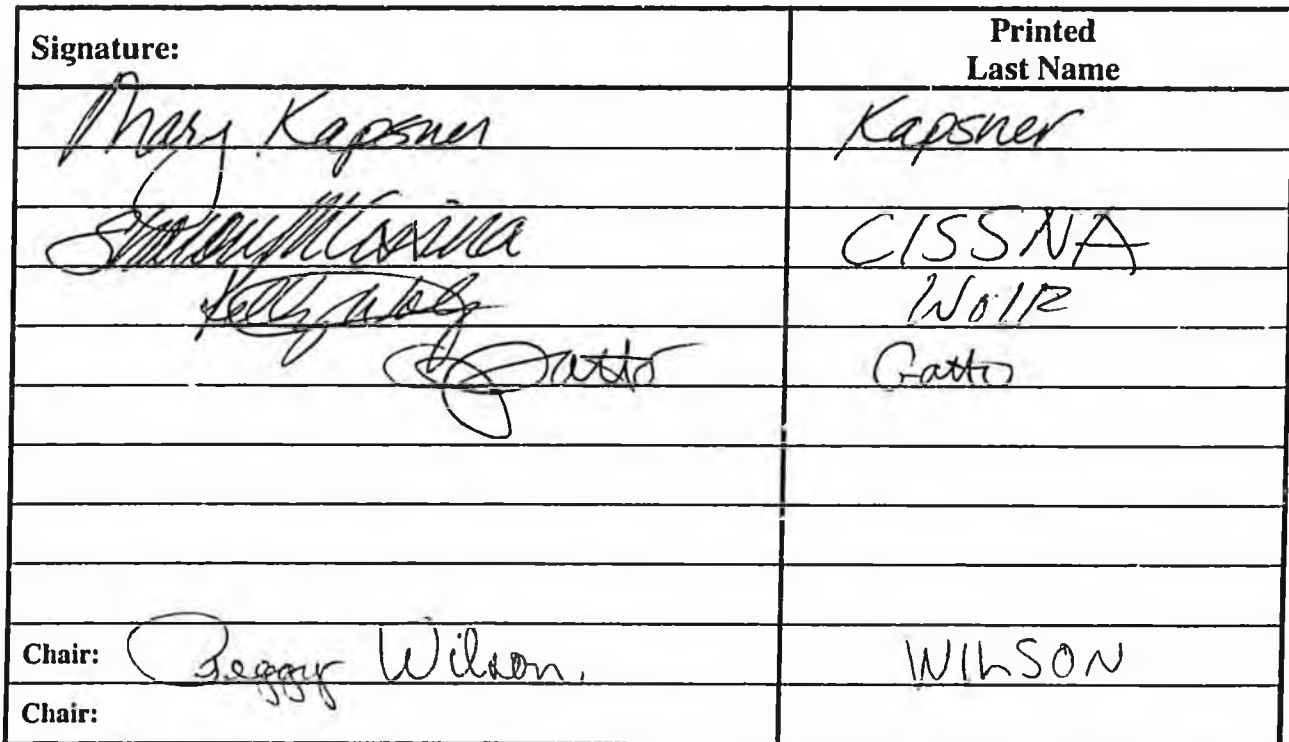 Signature: Printed
Last Name
Mary Kapsner Kapsner
CISSNA
Kelly
Gatto Gatto
Chair: Peggy Wilson. WILSON
Chair: